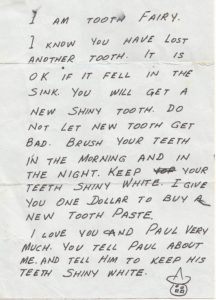 I AM TOOTH FAIRY.
I KNOW YOU HAVE LOST
ANOTHER TOOTH. IT IS
OK IF IT FELL IN THE
SINK. YOU WILL GET A
NEW SHINY TOOTH. DO
NOT LET NEW TOOTH GET
BAD. BRUSH YOUR TEETH
IN THE MORNING AND IN
THE NIGHT. KEEP YOUR
TEETH SHINY WHITE. I GIVE
YOU ONE DOLLAR TO BUY A
NEW TOOTH PASTE.
I LOVE YOU AND PAUL VERY
MUCH. YOU TELL PAUL ABOUT
ME. AND TELL HIM TO KEEP HIS
TEETH SHINY WHITE.